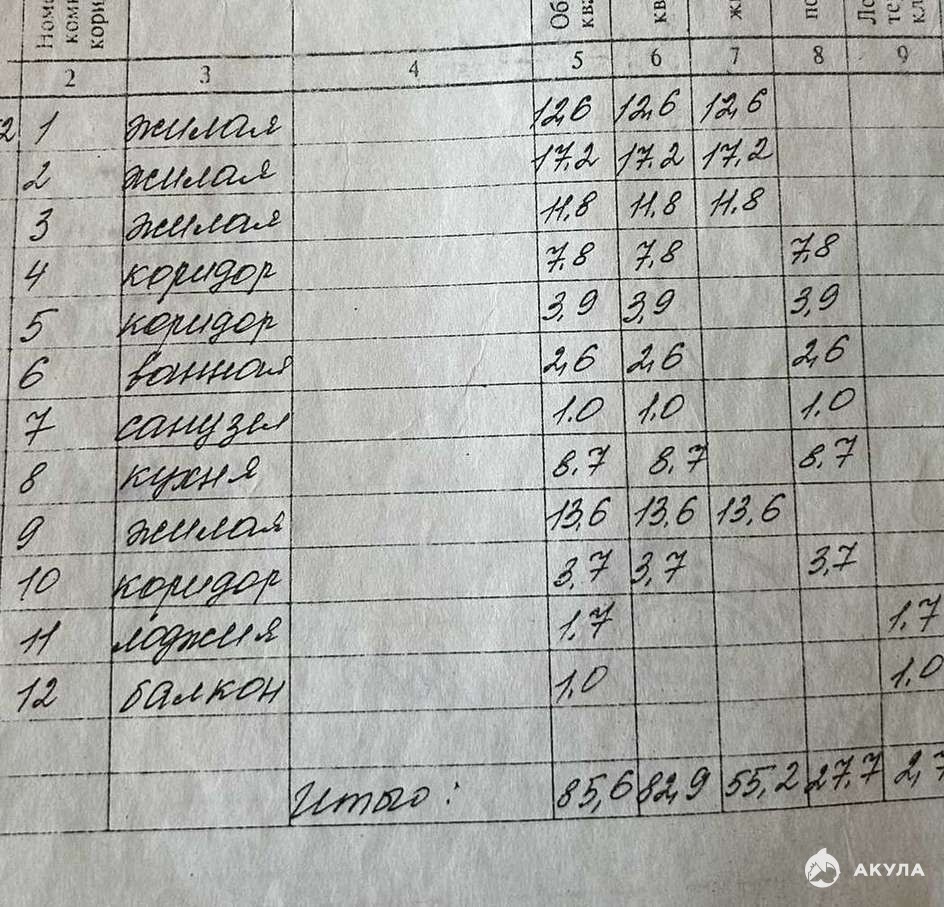 Номе
комн
кори
Об
ква
кв
жи
по
Ло
те
кл
2 3 4 5 6 7 8 9
2 1 жилая 12,6 12,6 12,6
2 жилая 17.2 17.2 17,2
3 жилая 11,8 11,8 11,8
4 коридор 7,8 7,8 7,8
5 коридор 3,9 3,9 3,9
6 ванная 2,6 2,6 2,6
7 санузел 1.0 1.0 1.0
8 кухня 8,7 8,7 8,7
9 жилая 13,6 13,6 13,6
10 коридор 3,7 3,7 3,7
11 лоджия 1,7 1,7
12 балкон 1,0 1,0
Итого: 85,6 82,9 55,2 27,7 2,7
АКУЛА